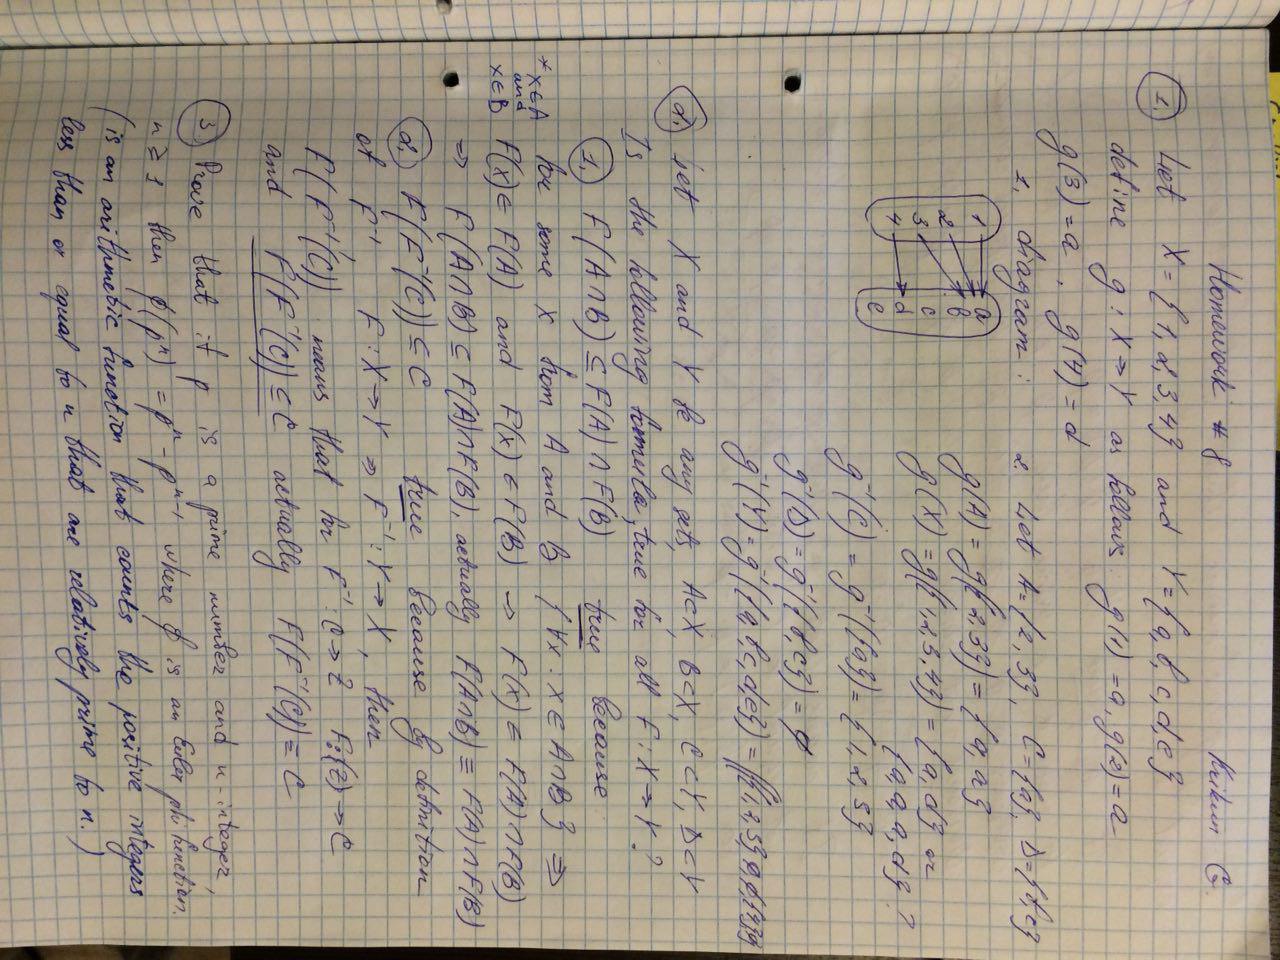 Homework #8
1. Let X = {1,2,3,4} and Y = {a,b,c,d,e}
define g: X→Y as follows: g(1) = a, g(2) = a
g(3) = a, g(4) = d
1, diagram:
1
2
3
4
a
b
c
d
e
2. Let A = {2,3}, C = {a}, D = {b,c}
g(A) = g({2,3}) = {a,a}
g(X) = g({1,2,3,4}) = {a,d} or
{a,a,a,d}?
g⁻¹(C) = g⁻¹({a}) = {1,2,3}
g⁻¹(D) = g⁻¹({b,c}) = ∅
g⁻¹(Y) = g⁻¹({a,b,c,d,e}) =
2. Let X and Y be any sets, A⊂X, B⊂X, C⊂Y, D⊂Y
Is the following formula true for all F: X→Y?
1. F(A∩B) ⊆ F(A)∩F(B) true because
* x∈A
and
x∈B
for some X from A and B {∀x: x∈A∩B} ⇒
F(x)∈F(A) and F(x)∈F(B) ⇒ F(x) ∈ F(A)∩F(B)
⇒ F(A∩B) ⊆ F(A)∩F(B), actually F(A∩B) ≡ F(A)∩F(B)
2. F(F⁻¹(C)) ⊆ C true because by definition
of F⁻¹ F: X→Y ⇒ F⁻¹: Y→X, then
F(F⁻¹(C)) means that for F⁻¹: C→Z F:(Z)→C
and F(F⁻¹(C)) ⊆ C actually F(F⁻¹(C)) ≡ C
3. Prove that if p is a prime number and n-integer,
n ≥ 1 then ϕ(pⁿ) = pⁿ - pⁿ⁻¹ where ϕ is an Euler phi function.
(is an arithmetic function that counts the positive integers
less than or equal to n that are relatively prime to n.)